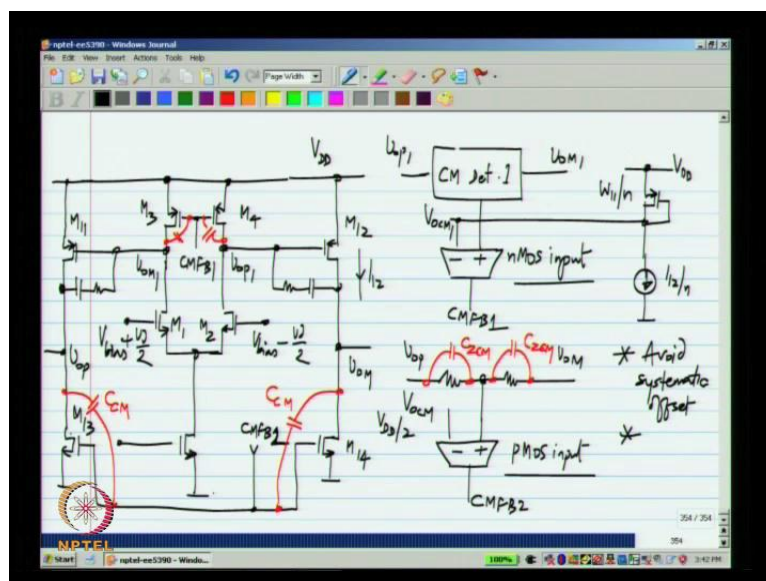 nptel-ee5390 - Windows Journal
File Edit View Insert Actions Tools Help
Page Width
B I
VDD
M11
M3
M4
M12
CMFB1
Vom1
Vop1
I12
M1
M2
Vbias + Vd/2
Vbias - Vd/2
Vop
VOM
CCM
CCM
M13
M14
Vop1
CM det. 1
VOM1
VOCM1
- +
nMOS input
CMFB1
W11/n
VDD
I12/n
Vop
CZCM
CZCM
VOM
VOCM
VDD/2
- +
pMOS input
CMFB2
* Avoid
systematic
offset
*
NPTEL
354 / 354
354
Start
nptel-ee5390 - Windo...
100%
3:42 PM